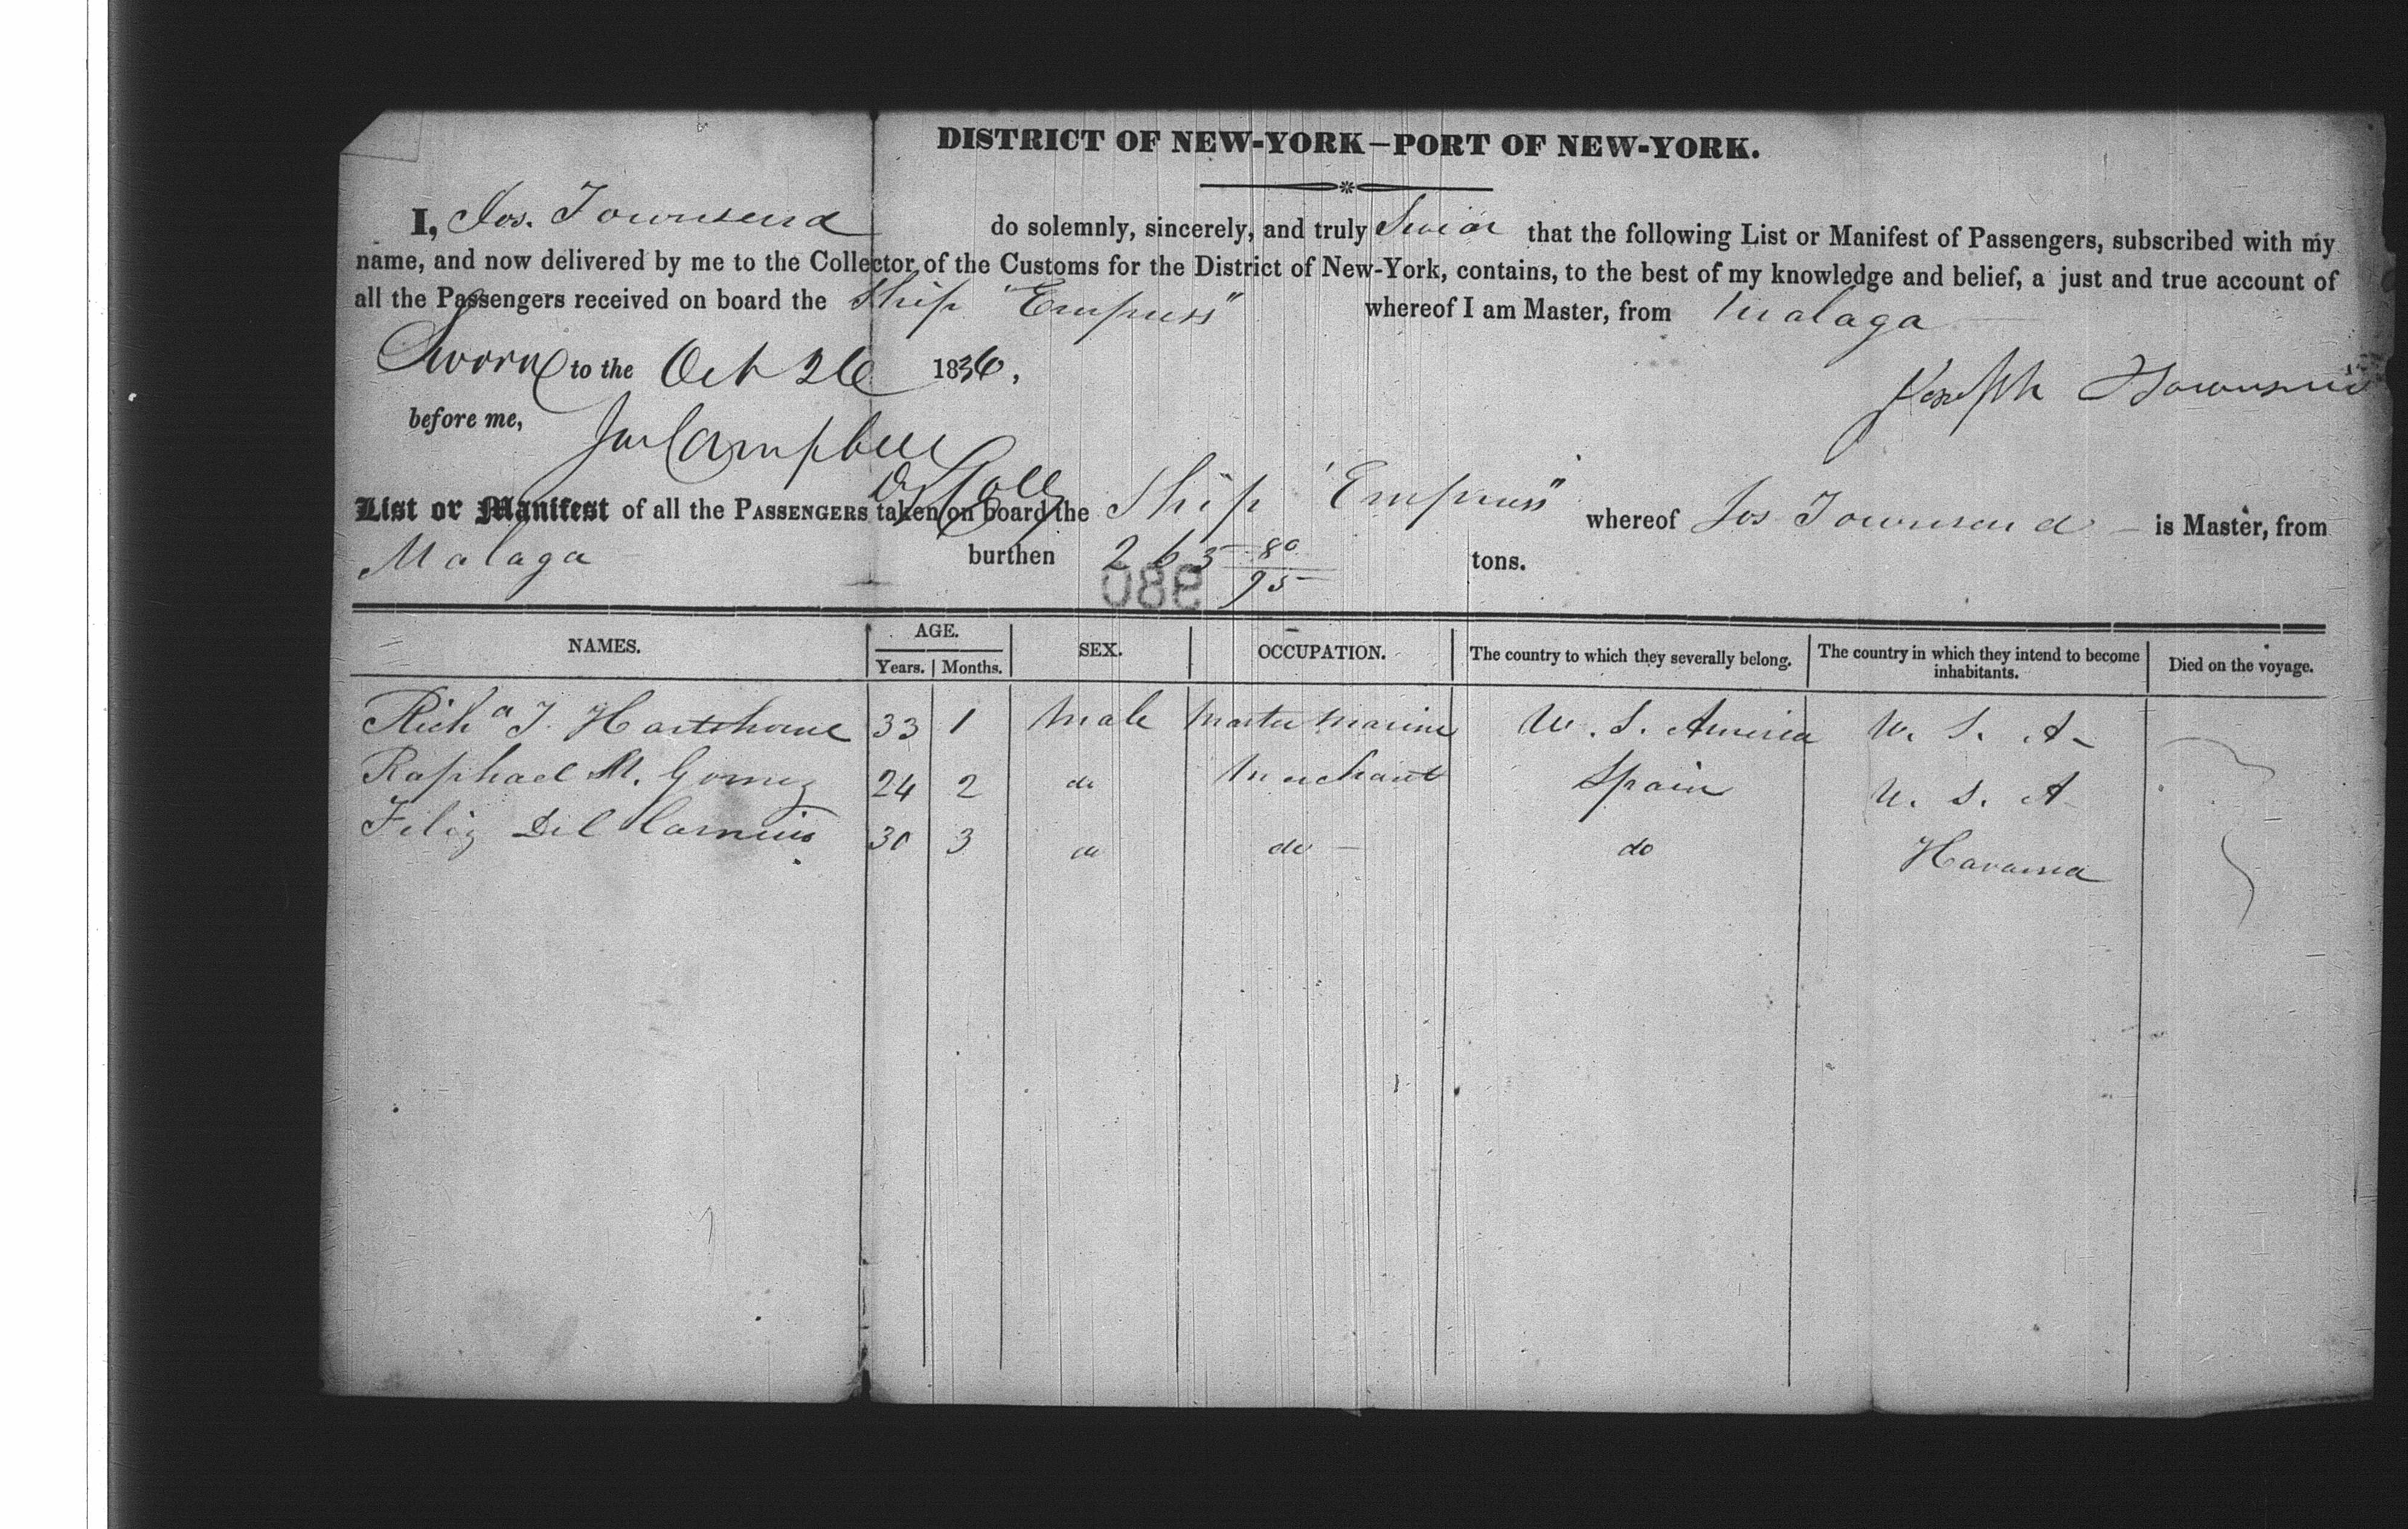 DISTRICT OF NEW-YORK—PORT OF NEW-YORK.
I, Jos. Townsend do solemnly, sincerely, and truly Swear that the following List or Manifest of Passengers, subscribed with my
name, and now delivered by me to the Collector of the Customs for the District of New-York, contains, to the best of my knowledge and belief, a just and true account of
all the Passengers received on board the Ship "Empress" whereof I am Master, from Malaga
Sworn to the Oct 26 1836,
Joseph Townsend
before me,
Campbell
D Coll
List or Manifest of all the PASSENGERS taken on board the Ship "Empress" whereof Jos Townsend is Master, from
Malaga burthen 263 80/95 tons.
980
NAMES. AGE. SEX. OCCUPATION. The country to which they severally belong. The country in which they intend to become inhabitants. Died on the voyage.
Years. Months.
Richd T. Hartshorne 33 1 Male Master Marine U. S. America U. S. A-
Raphael M. Gomez 24 2 do Merchant Spain U. S. A
Feliz Del 30 3 do do - do Havanna